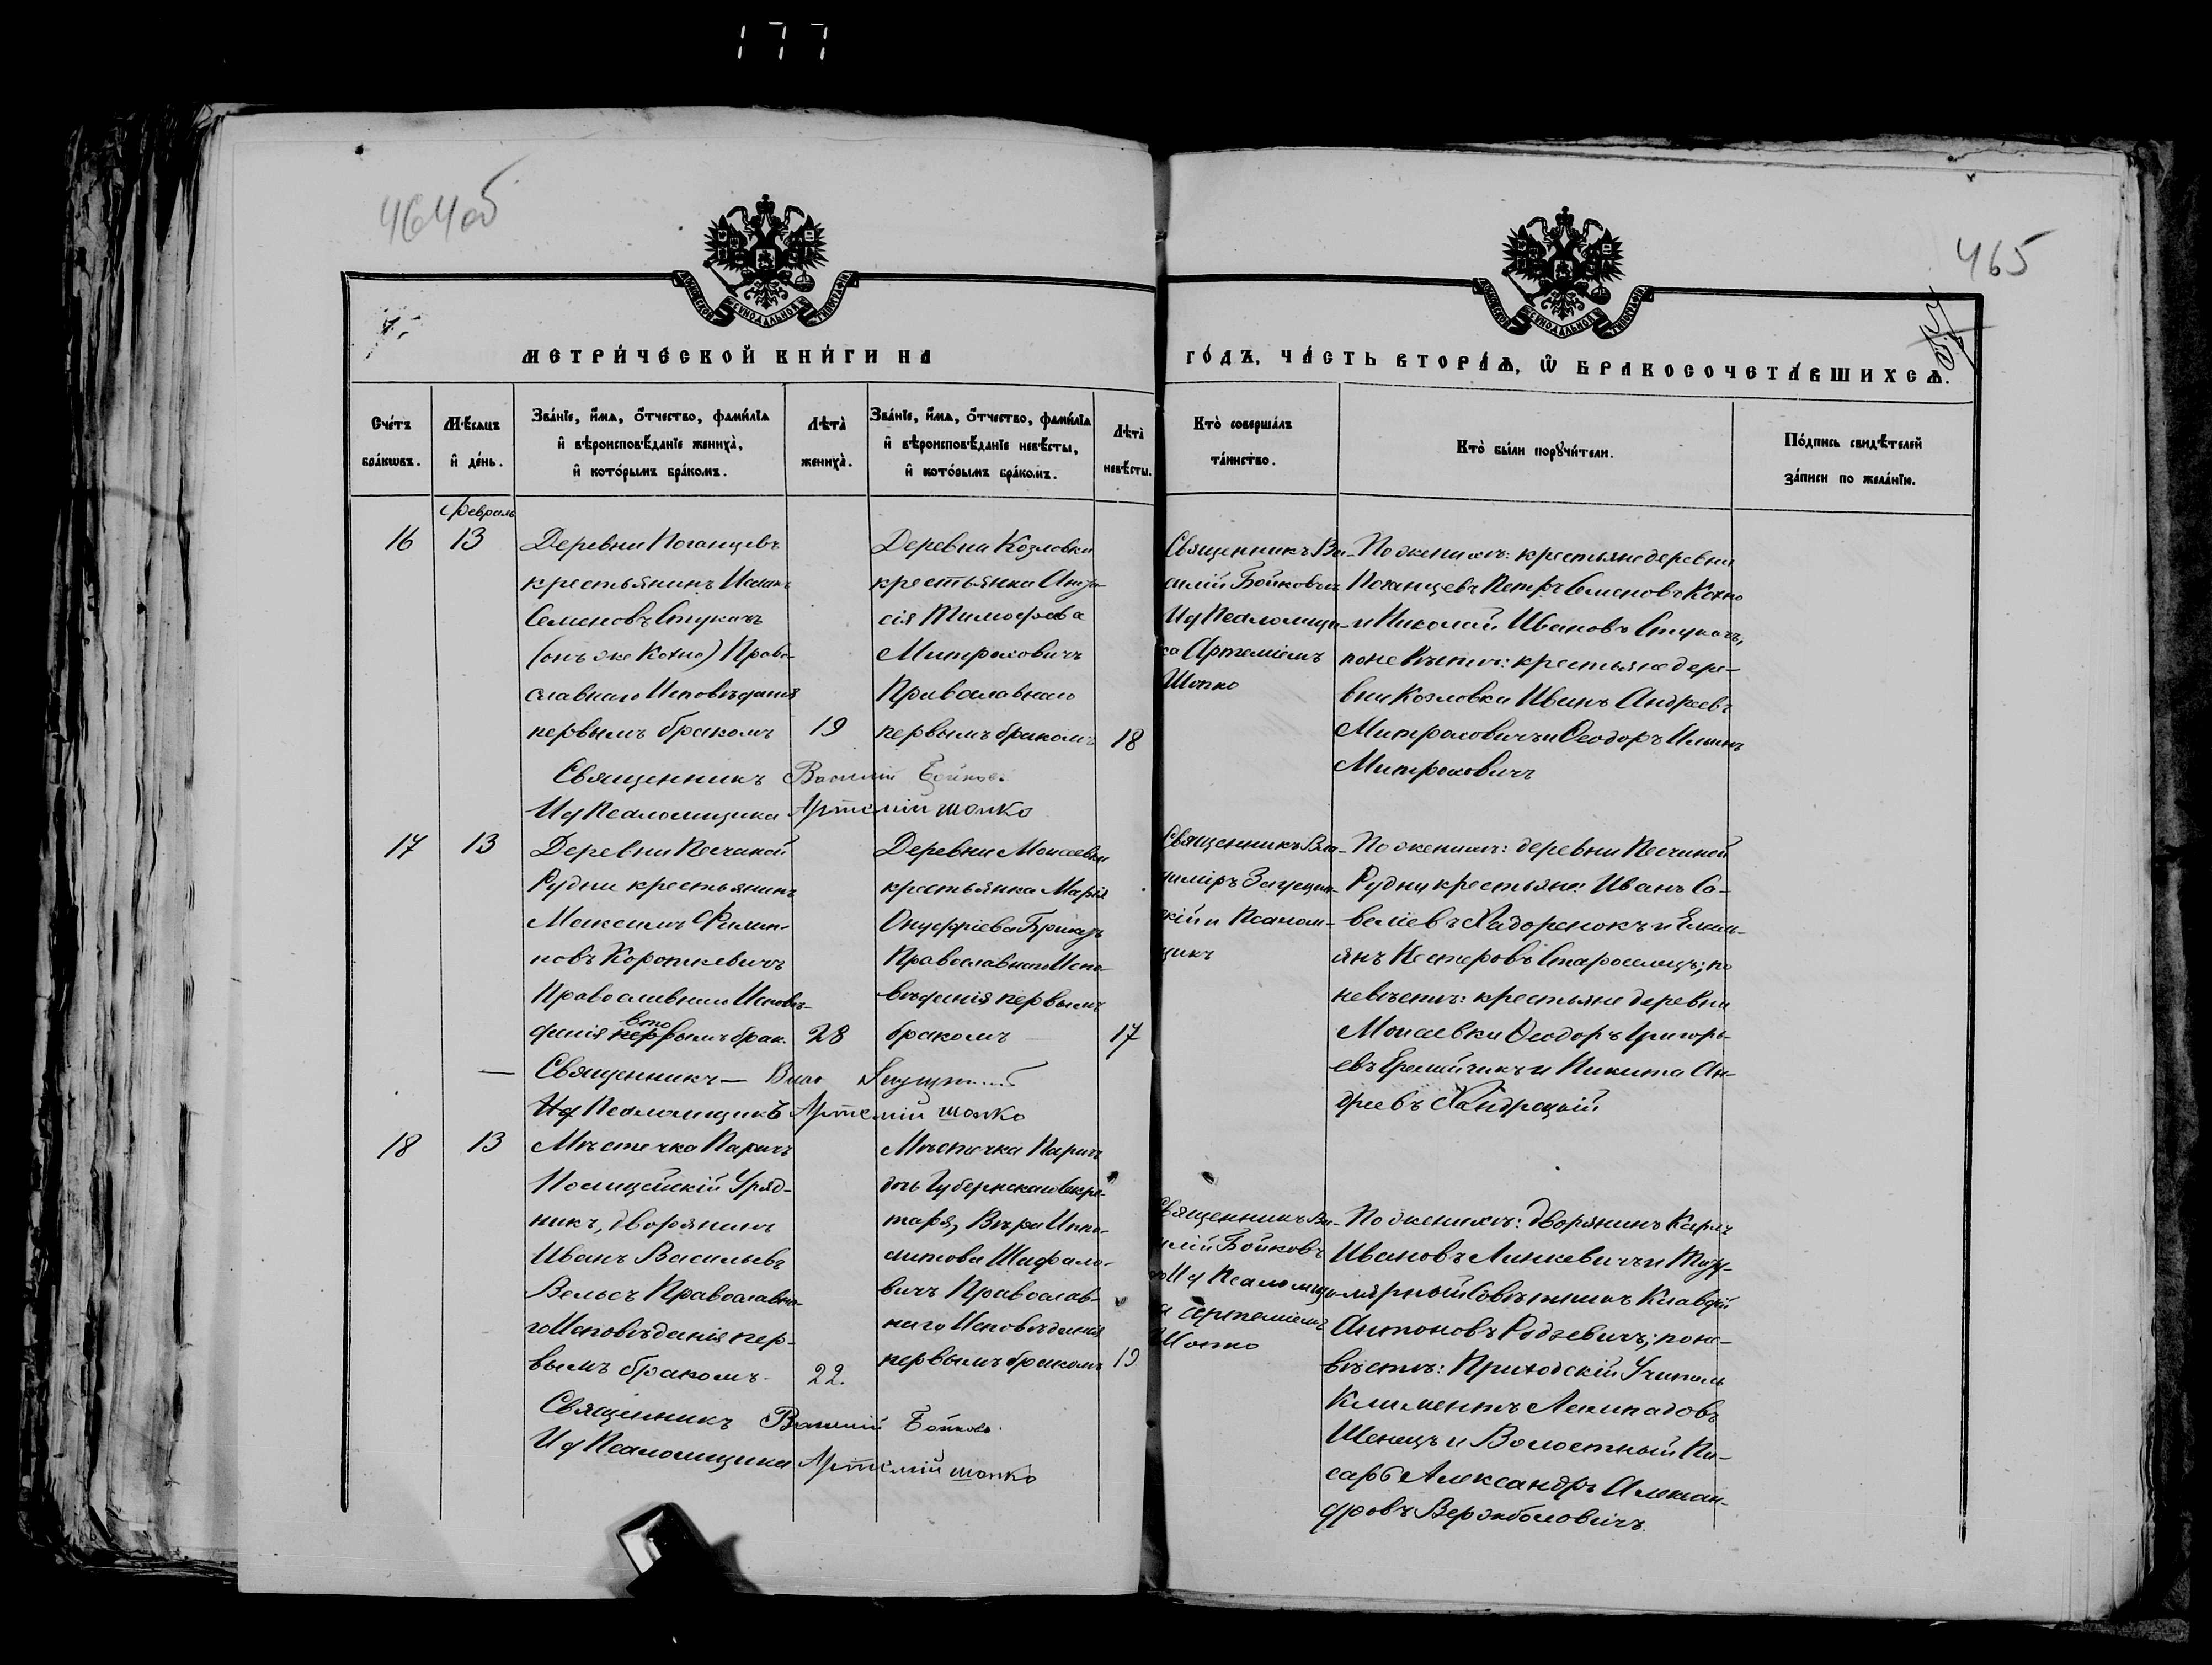 177
464об
465
МЕТРИ́ЧЕСКОЙ КНИ́ГИ НА
ГО́ДЪ, ЧА́СТЬ ВТОРА́Ѧ, Ѡ҆ БРАКОСОЧЕТА́ВШИХСѦ.
Сче́тъ
бра́кѡвъ.
Мѣ́сяцъ
и҆ де́нь.
Зва́нїе, и҆́мѧ, ѻ҆́тчество, фами́лїѧ
и҆ вѣроисповѣ́данїе жениха̀,
и҆ кото́рымъ бра́комъ.
Лѣта̀
жениха̀.
Зва́нїе, и҆́мѧ, ѻ҆́тчество, фами́лїѧ
и҆ вѣроисповѣ́данїе невѣ́сты,
и҆ кото́рымъ бра́комъ.
Лѣта̀
невѣ́сты.
Кто̀ соверша́лъ
та́инство.
Кто̀ бы́ли порꙋчи́тели.
По́дпись свидѣ́телей
за́писи по жела́нїю.
Февраль
16
13
Деревни Поганцевъ
крестьянинъ
Семеновъ Стукачъ
(онъ же Кохно) Право-
славнаго Исповѣданія
первымъ бракомъ
19
Деревни Козловки
крестьянка
сія Тимофеева
Митраховичъ
Православнаго
первымъ бракомъ
18
Священникъ Ва-
силій Бойковъ и
Ид Псаломщи-
ка Артеміемъ
Шопко
По женихѣ: крестьяне деревни
Поганцевъ Петръ Семеновъ Кохно
и Николай Ивановъ Стукачъ,
по невѣстѣ: крестьяне дере-
вни Козловки Иванъ Андреевъ
Митраховичъ и Ѳеодоръ Ильинъ
Митраховичъ
Священникъ Василій Бойковъ
Ид Псаломщика Артемій Шопко
17
13
Деревни Песчаной
Рудни крестьянинъ
Максимъ Филип-
повъ Короткевичъ
Православнаго Исповѣ-
данія вторымъ брак.
28
Деревни Моисеевки
крестьянка Марія
Онуфріева
Православнаго Испо-
вѣданія первымъ
бракомъ
17
Священникъ Вла-
диміръ
скій и Псалом-
щикъ
По женихѣ: деревни Песчаной
Рудни крестьяне: Иванъ Са-
веліевъ Хадоренокъ и Емель-
янъ Нестеровъ Староселецъ; по
невѣстѣ: крестьяне деревни
Моисеевки Ѳеодоръ Григорь-
евъ Еремейчикъ и Никита Ан-
дреевъ
Священникъ — Влад
Псаломщикъ Артемій Шопко
18
13
Мѣстечка Паричъ
Полицейскій Уряд-
никъ, дворянинъ
Иванъ Васильевъ
Вельсъ Православна-
го Исповѣданія пер-
вымъ бракомъ
22.
Мѣстечка Паричъ
дочь Губернскаго Секре-
таря, Вѣра Иппо-
литова Шафало-
вичъ Православ-
наго Исповѣданія
первымъ бракомъ
19
Священникъ Ва-
силій Бойковъ
и Ид Псаломщи-
ка Артеміемъ
Шопко
По женихѣ: дворянинъ Карлъ
Ивановъ Линкевичъ и Титу-
лярный Совѣтникъ Клавдій
Антоновъ Родзевичъ; по не-
вѣстѣ: Приходскій Учитель
Климентъ
Шенецъ и Волостный Пи-
сарь Александръ Алексан-
дровъ Вержболовичъ
Священникъ Василій Бойковъ
Ид Псаломщика Артемій Шопко